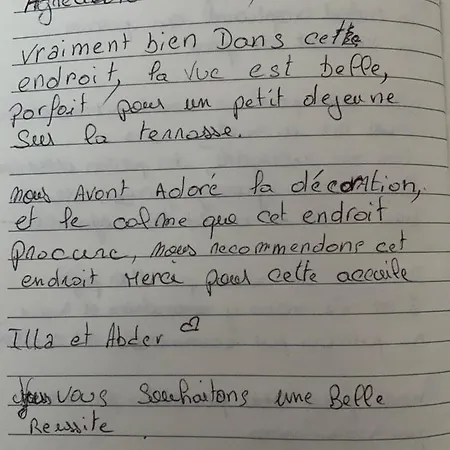 vraiment bien Dans cette
endroit, la vue est belle,
parfait pour un petit dejeune
sur la terrasse.
nous Avont Adoré la décoration,
et le calme que cet endroit
procure, nous recommendons cet
endroit Merci pour cette accuile
Illa et Abder
vous souhaitons une Belle
Reussite